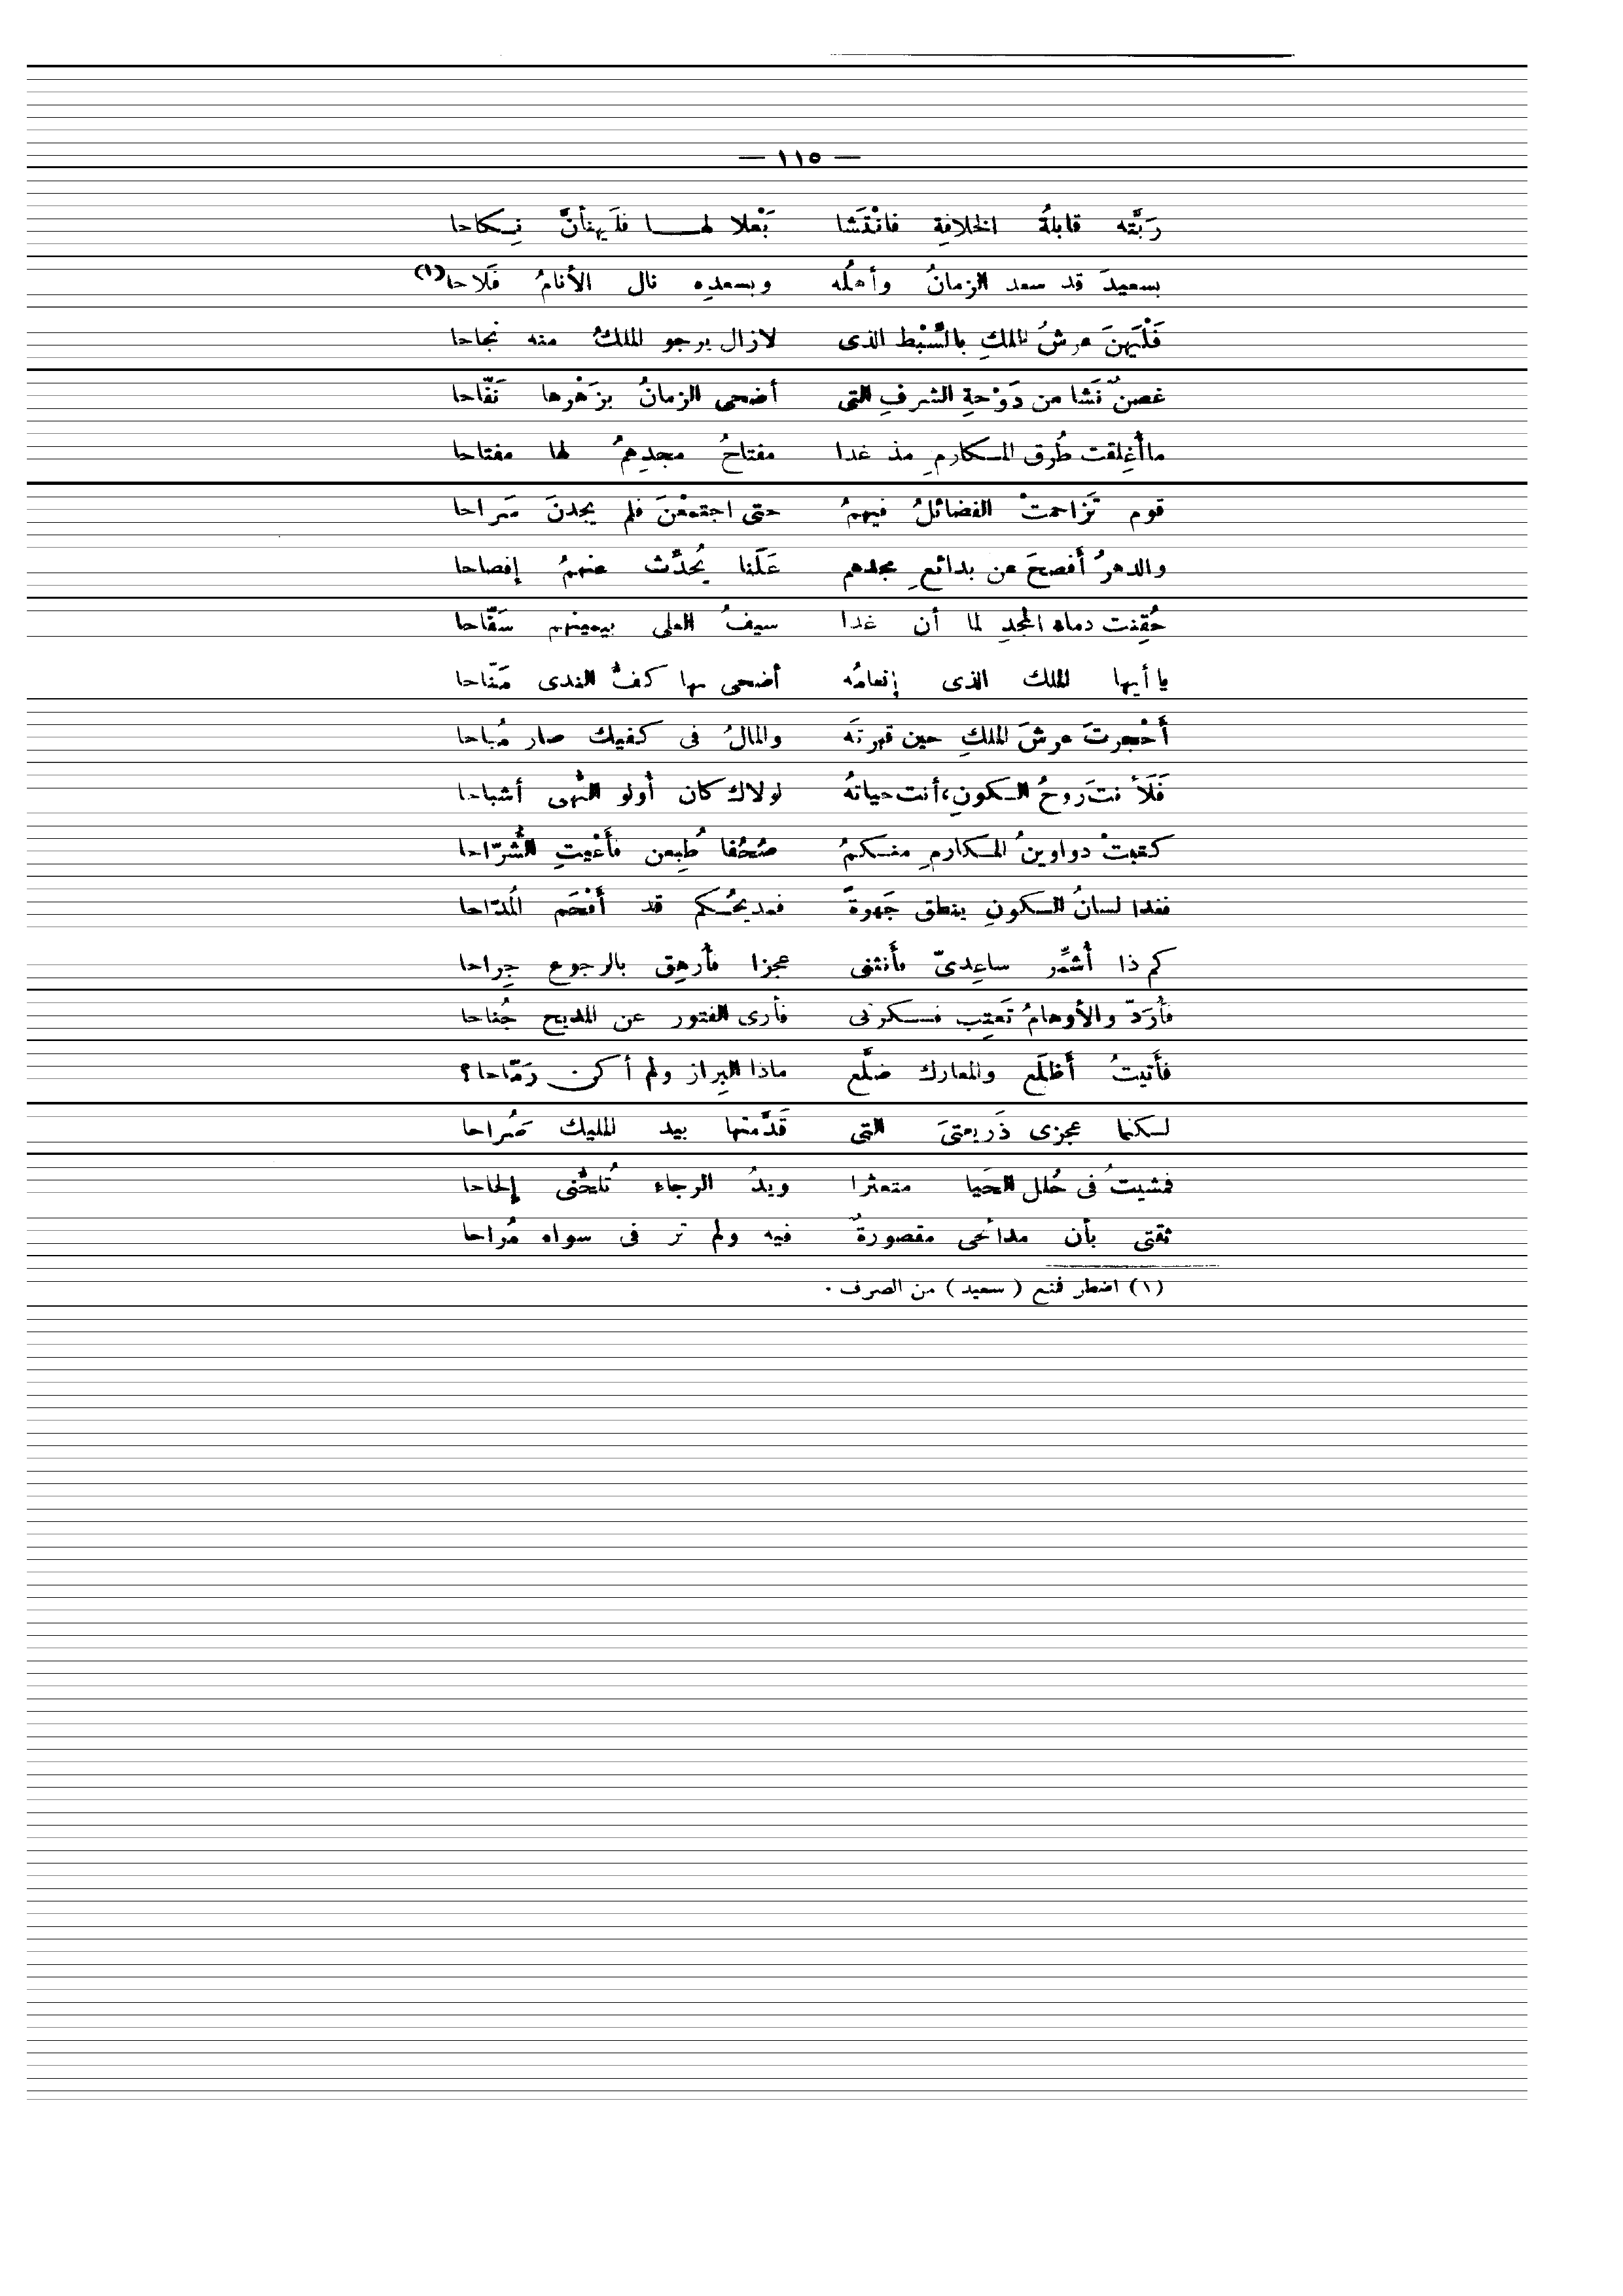 — ١١٥ —
رَبَّته قابلةُ الخلافةِ فانْتَشا بَعْلا لهـا فلَيهنأنَّ نِـكاحا
بسعيدَ قد سعد الزمانُ وأهلُه وبسعدِه نال الأنامُ فَلاحا(١)
فَلْيَهنَ عرشُ الملكِ بالسِّبْط الذى لازال يرجو الملكُ منه نجاحا
غصنٌ نَشا من دَوْحةِ الشرفِ التى أضحى الزمانُ بزَهْرها نَفّاحا
ماأُغلِقت طُرق المـكارمِ مذ غدا مفتاحُ مجدِهمُ لها مفتاحا
قوم تَزاحمتْ الفضائلُ فيهمُ حتى اجتمعْنَ فلم يجدنَ مَراحا
والدهرُ أفصحَ عن بدائعِ مجدهم عَلَنا يُحدِّث عنهمُ إفصاحا
حُقِنت دماه المجدِ لما أن غدا سيفُ العلى بيمينهم سَفّاحا
يا أيها الملك الذى إنعامُه أضحى بها كفُّ الندى مَنّاحا
أَحْجرتَ عرشَ الملكِ حين قهرتَه والمالُ فى كفيك صار مُباحا
فَلَأَ نتَ روحُ الـكونِ، أنت حياتهُ لولاك كان أُولو النُّهى أشباحا
كتبتْ دواوينُ المـكارمِ منـكمُ صُحُفا طُبِعن فأَعْيتِ الشُّرّاحا
فغدا لسانُ الـكونِ ينطق جَهرةً فمديحُـكم قد أَفْحَم المُدّاحا
كم ذا أُشمِّر ساعِدىّ فأَنثنى عجزا فأُرهِق بالرجوع جِراحا
فأُرَدّ والأوهامُ تَعتِب فـكرتى فأرى الفتور عن المديح جُناحا
فأَتيتُ أَظلَع والمعارك ضلَّع ماذا البِراز ولم أكن رَمّاحا؟
لـكنما عجزى ذَريعتىَ التى قَدَّمتها بيد المليك صُراحا
فمشيتُ فى حُلل الحَيا متعثرا ويدُ الرجاء تُلحُّنى إلحاحا
ثقتى بأن مدائحى مقصورةٌ فيه ولم تر فى سواه مُراحا
(١) اضطر فمنع (سعيد) من الصرف.